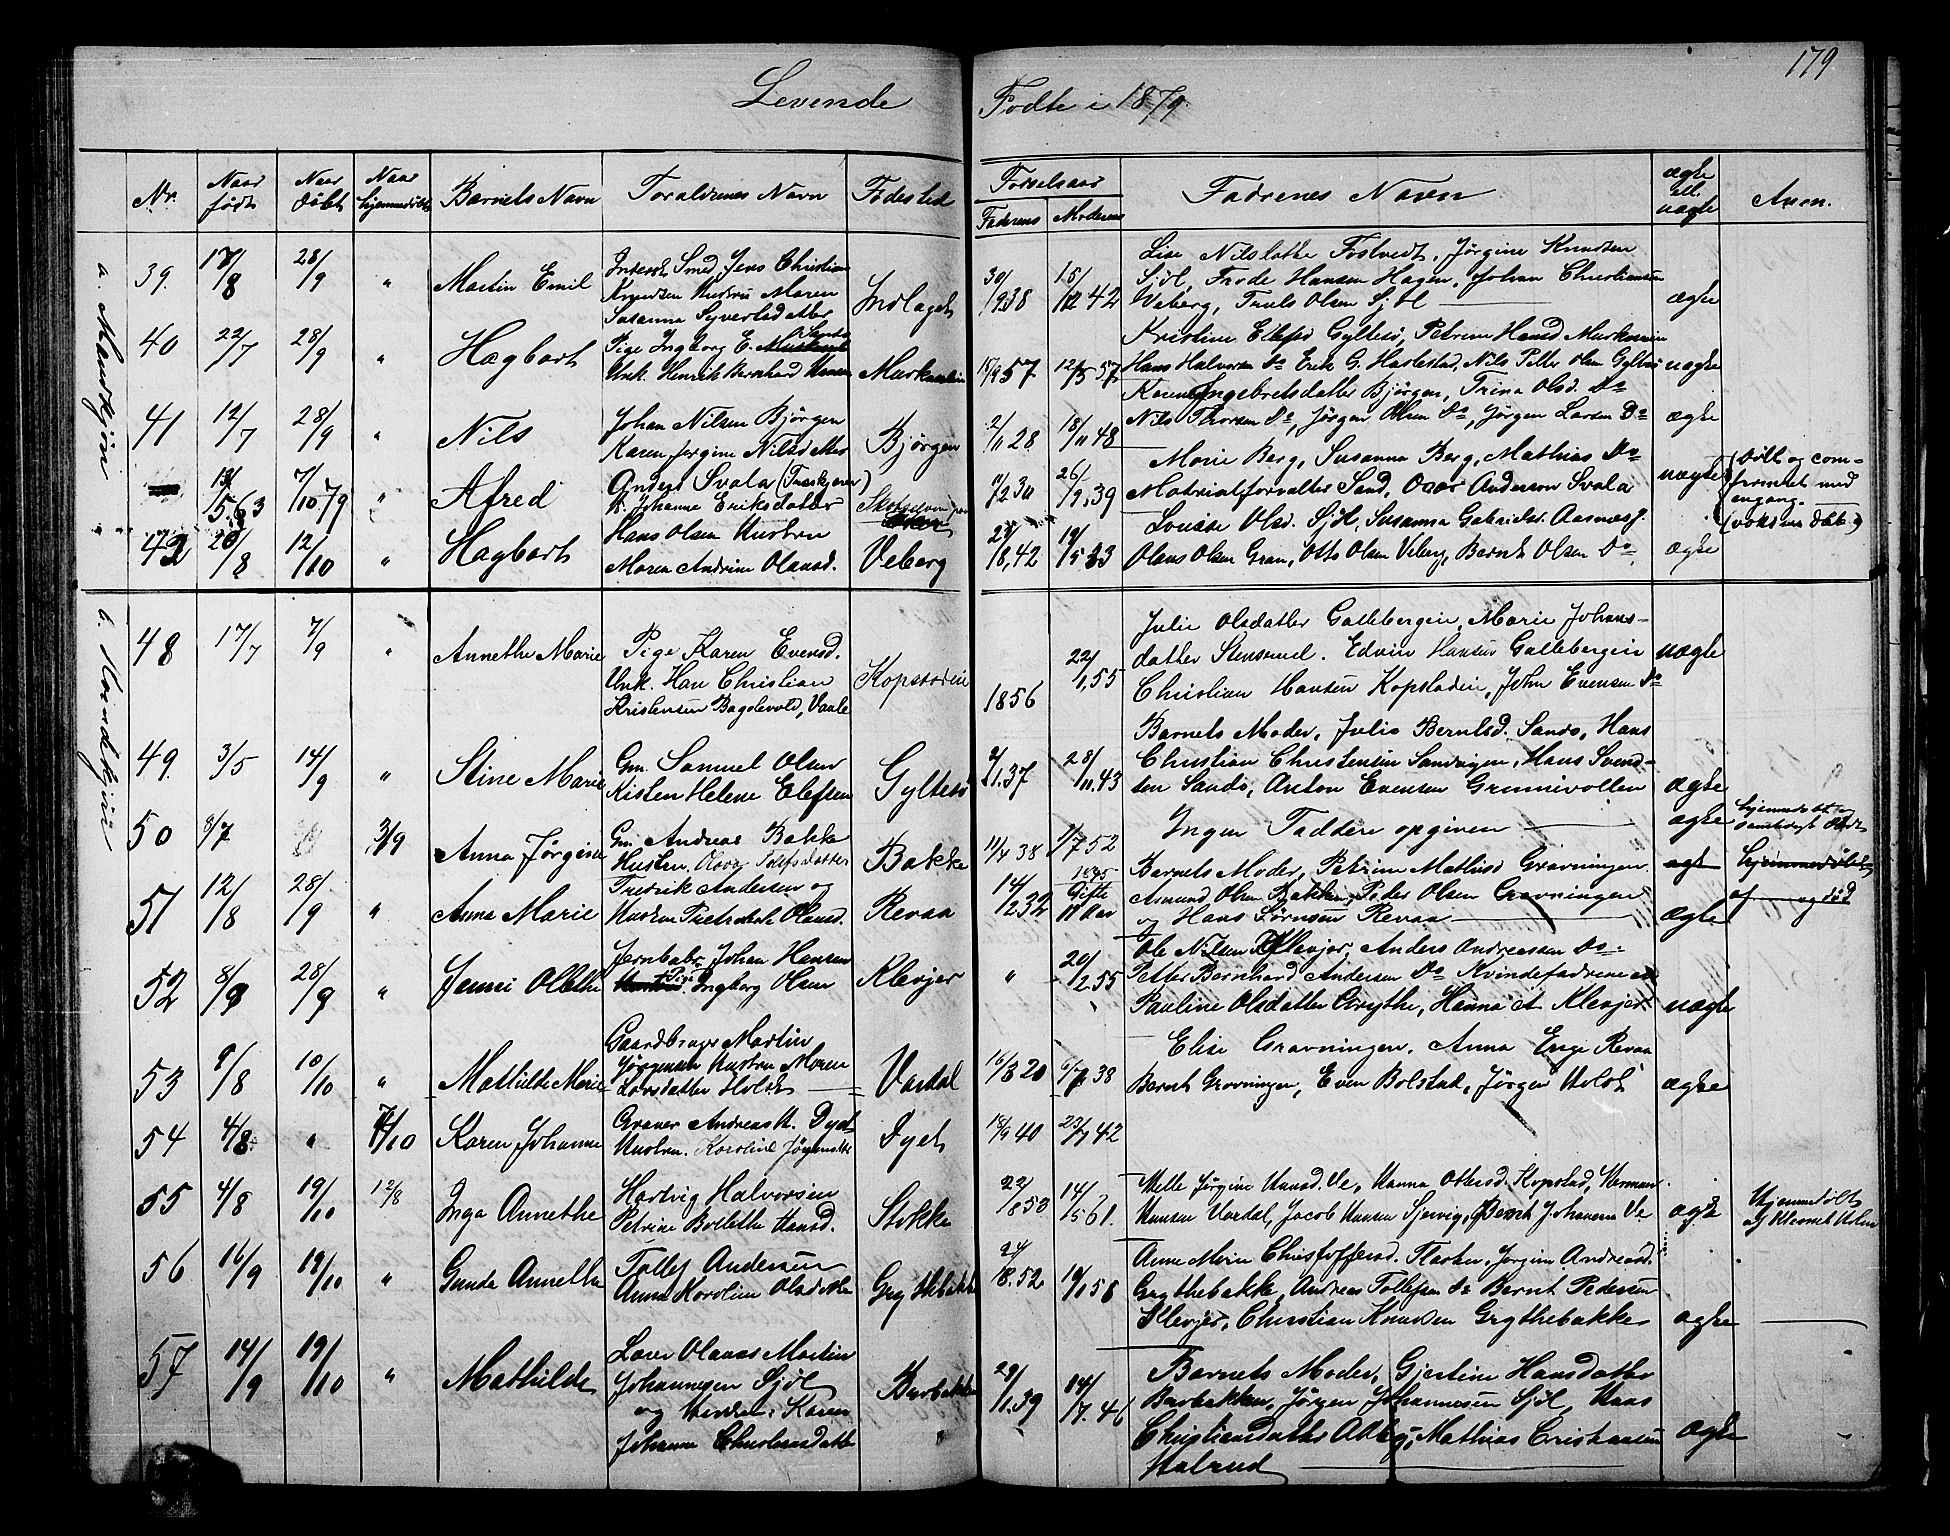 179
Levende Fødte i 1879.
Nr. Naar født Naar døbt Naar hjemmedøbt Barnets Navn Foraldrenes Navn Fødested
Fødselsaar Faderens Moderens Fadrenes Navn ægte ell. uægte Anm.
a. Mandkjøn
39. 17/8 28/9 " Martin Emil
Inderst Smed Jens Christian
Knudsen Hustru Maren
Susanna Syvertsdatter
Indlaget
30/9 38 15/12 42
Lise Nilslokke Fostvedt, Jørgine Knudsen
Sjøl, Frode Hansen Hagen, Johan Christiansen
Weberg, Truls Olsen Sjøl
ægte
40 22/7 28/9 " Hagbart
Pige Ingborg E. Sando
Unk. Henrik Bernhard Hansen
9 57 12/5 57
Kristine Gyltesø, Petrine Hansd.
Hans Halvorsen Do Erik G. Hartestad, Nils Petter Olsen Gyltesø
uægte
41 12/7 28/9 " Nils
Johan Nilsen Bjørgen
Karen Jørgine Nilsdatter
Bjørgen
2/11 28 18/11 48
Karen Ingebretsdatter Bjørgen, Trina Olsd. Do
Nils Thorsen Do, Jørgen Olsen Do, Jørgen Larsen Do
ægte
13/5 63 7/10 79 " Afred
Anders Svala
Johanne Eriksdatter
2 30 26/9 39
Marie Berg, Susanna Berg, Mathias Do
Matrialforvalter Sand, Oscar Anderson Svala
uægte
(Døbt og con-
firmeret med
engang.
(voksen døbt)
42 20/8 12/10 " Hagbart
Hans Olsen Hustru
Maren Andrine Olausd.
Veberg
8 42 19/5
Louise Olsd. Sjøl, Susanna Gabrielsd. Aasnæs
Olaus Olsen Gran, Otto Olsen Veberg, Bernt Olsen Do
ægte
b. Kvindekjøn
48 17/7 7/9 " Annethe Marie
Pige Karen Evensd.
Unk. Han Christian
Kristensen Bagslevold, Vaale
Kopstadeie
1856 22/1 55
Julie Olsdatter Gallebergeie, Marie Johans-
datter Stensrud. Edvin Hansen Gallebergeie
Christian Hansen Kopstadeie, John Evensen Do
uægte
49. 3/5 14/9 " Stine Marie
Gm. Samuel Olsen
Kisten Helene Elefsen
Gyltesø
2/1 37 28/11 43
Barnets Moder, Julie Berntsd. Sando, Hans
Christian Christensen Sandvigen, Hans Svend-
sen Sando, Anton Evensen Grunnevollen
ægte
50 8/7 3/9 Anna Jørgine
Gm. Andreas Bakke
Hustru Olava
Bakke
11/4 38 7 52
Ingen Faddere opgiven
ægte
51 12/8 28/9 " Anna Marie
Fredrik Andersen og
Hustru Olausd.
Revaa
14/2 32 Gifte 17 Aar
Barnets Moder, Petrine Mathisd Gravningen
Asmund Olsen Bakken, Peder Olsen Gravningen
og Hans Sørnsen Revaa
ægte
Hjemmedøbt
af og død
52 8/8 28/9 " Jenni Olethe
Jernbabr. Johan Hansen
Pige Ingborg Olsen
Klevjer
" 20/2 55
Ole Nilsen Klevjer, Anders Andreassen Do
Petter Bernhard Andersen Do Kvindefadrene er
Pauline Olsdatter Grythe, Hanna A. Klevjer
uægte
53 9/8 10/10 " Mathilde Marie
Gaardbruger Martin
Jørgensen Hustru Maren
Larsdatter Holdt
Vardal
16/3 20 6/7 38
Elise Gravningen, Anna Enge Revaa
Bernt Gravningen, Even Bolstad, Jørgen Holdt
ægte
54 4/8 " 7/10 Karen Johanne
Graver Andreas H. Dyet
Hustru. Karoline
Dyet
18/9 40 23/7 42
55 4/8 19/10 12/8 Inga Annethe
Hartvig Halvorsen
Petrine Bolethe Hansd.
Stokke
22/8 53 14/5 61.
Helle Jørgine Hansd. Ve, Hanna Ottersd. Kopstad, Herman
Hansen Vardal, Jacob Hansen Sjervig, Bernt Johansen Ve
ægte
Hjemmedøbt
af Klemet Holm
56 16/9 19/10 " Gunda Annethe
Tollef Andersen
Anna Karoline Olsdatter
Grythebakke
24/8. 52 19/1 58
Anne Marie Christoffersd. Flaaten, Jørgine Andreasd.
Grythebakke, Andreas Tollefsen Do Bernt Pedersen
Klevjer, Christian Knudsen Grythebakke
ægte
57 14/9 19/10 " Mathilde
Lars Olaus Martin
Johannesen Sjøl
og Hustru: Karen
Johanne Christensdatter
Barbakken
29/1. 39 14/7. 46
Barnets Moder, Gjertine Hansdatter
Barbakken, Jørgen Johannesen Sjøl, Hans
Christiansdatter Adberg, Mathias Cristiansen
Halrud
ægte